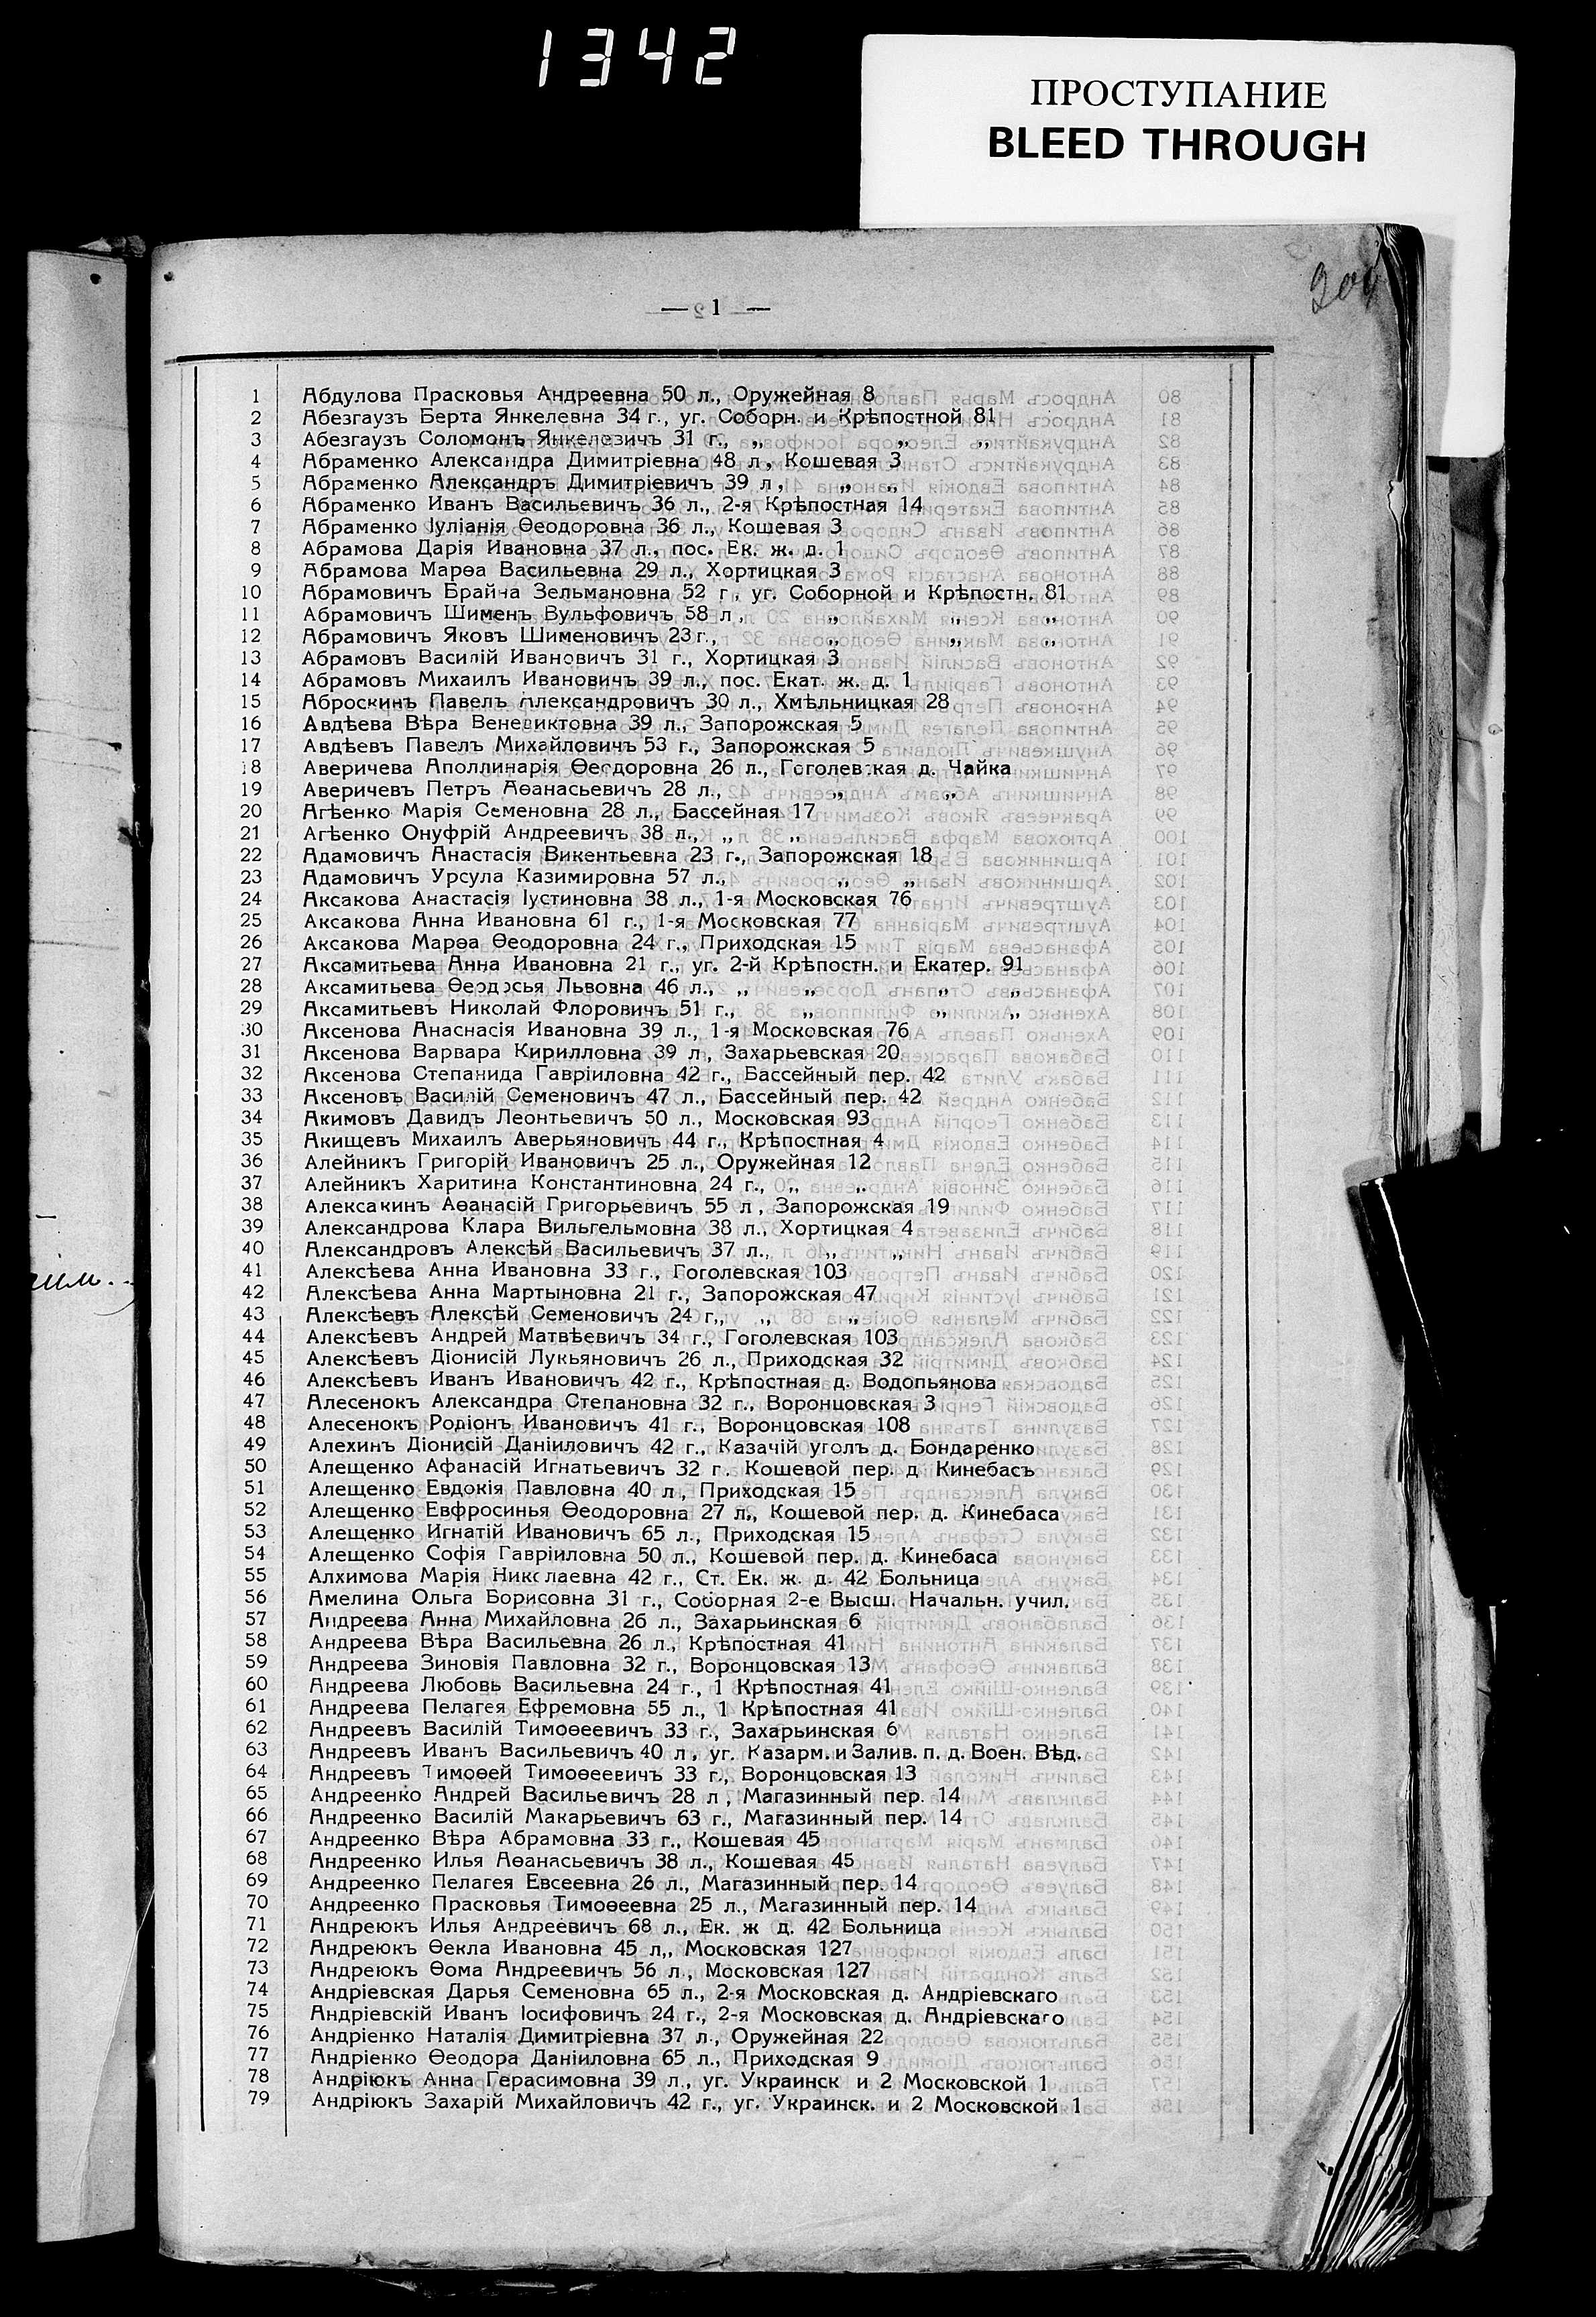 1342
ПРОСТУПАНИЕ
BLEED THROUGH
— 1 —
1 Абдулова Прасковья Андреевна 50 л., Оружейная 8
2 Абезгаузъ Берта Янкелевна 34 г., уг. Соборн. и Крѣпостной 81
3 Абезгаузъ Соломонъ Янкелевичъ 31 г., „ „ „
4 Абраменко Александра Димитріевна 48 л., Кошевая 3
5 Абраменко Александръ Димитріевичъ 39 л., „ „
6 Абраменко Иванъ Васильевичъ 36 л., 2-я Крѣпостная 14
7 Абраменко Іуліанія Ѳеодоровна 36 л., Кошевая 3
8 Абрамова Дарія Ивановна 37 л., пос. Ек. ж. д. 1
9 Абрамова Марѳа Васильевна 29 л., Хортицкая 3
10 Абрамовичъ Брайна Зельмановна 52 г., уг. Соборной и Крѣпостн. 81
11 Абрамовичъ Шименъ Вульфовичъ 58 л., „ „ „
12 Абрамовичъ Яковъ Шименовичъ 23 г., „ „ „
13 Абрамовъ Василій Ивановичъ 31 г., Хортицкая 3
14 Абрамовъ Михаилъ Ивановичъ 39 л., пос. Екат. ж. д. 1
15 Аброскинъ Павелъ Александровичъ 30 л., Хмѣльницкая 28
16 Авдѣева Вѣра Веневиктовна 39 л., Запорожская 5
17 Авдѣевъ Павелъ Михайловичъ 53 г., Запорожская 5
18 Аверичева Аполлинарія Ѳеодоровна 26 л., Гоголевская д. Чайка
19 Аверичевъ Петръ Аѳанасьевичъ 28 л., „ „
20 Агѣенко Марія Семеновна 28 л., Бассейная 17
21 Агѣенко Онуфрій Андреевичъ 38 л., „ „
22 Адамовичъ Анастасія Викентьевна 23 г., Запорожская 18
23 Адамовичъ Урсула Казимировна 57 л., „ „
24 Аксакова Анастасія Іустиновна 38 л., 1-я Московская 76
25 Аксакова Анна Ивановна 61 г., 1-я Московская 77
26 Аксакова Марѳа Ѳеодоровна 24 г., Приходская 15
27 Аксамитьева Анна Ивановна 21 г., уг. 2-й Крѣпостн. и Екатер. 91
28 Аксамитьева Ѳеодосья Львовна 46 л., „ „ „ „
29 Аксамитьевъ Николай Флоровичъ 51 г., „ „ „
30 Аксенова Анаснасія Ивановна 39 л., 1-я Московская 76
31 Аксенова Варвара Кирилловна 39 л., Захарьевская 20
32 Аксенова Степанида Гавріиловна 42 г., Бассейный пер. 42
33 Аксеновъ Василій Семеновичъ 47 л., Бассейный пер. 42
34 Акимовъ Давидъ Леонтьевичъ 50 л., Московская 93
35 Акищевъ Михаилъ Аверьяновичъ 44 г., Крѣпостная 4
36 Алейникъ Григорій Ивановичъ 25 л., Оружейная 12
37 Алейникъ Харитина Константиновна 24 г., „ „
38 Алексакинъ Аѳанасій Григорьевичъ 55 л., Запорожская 19
39 Александрова Клара Вильгельмовна 38 л., Хортицкая 4
40 Александровъ Алексѣй Васильевичъ 37 л., „ „
41 Алексѣева Анна Ивановна 33 г., Гоголевская 103
42 Алексѣева Анна Мартыновна 21 г., Запорожская 47
43 Алексѣевъ Алексѣй Семеновичъ 24 г,, „ „
44 Алексѣевъ Андрей Матвѣевичъ 34 г., Гоголевская 103
45 Алексѣевъ Діонисій Лукьяновичъ 26 л., Приходская 32
46 Алексѣевъ Иванъ Ивановичъ 42 г., Крѣпостная д. Водопьянова
47 Алесенокъ Александра Степановна 32 г., Воронцовская 3
48 Алесенокъ Родіонъ Ивановичъ 41 г., Воронцовская 108
49 Алехинъ Діонисій Даніиловичъ 42 г., Казачій уголъ д. Бондаренко
50 Алещенко Афанасій Игнатьевичъ 32 г. Кошевой пер. д. Кинебасъ
51 Алещенко Евдокія Павловна 40 л., Приходская 15
52 Алещенко Евфросинья Ѳеодоровна 27 л,, Кошевой пер. д. Кинебаса
53 Алещенко Игнатій Ивановичъ 65 л., Приходская 15
54 Алещенко Софія Гавріиловна 50 л., Кошевой пер. д. Кинебаса
55 Алхимова Марія Николаевна 42 г., Ст. Ек. ж. д. 42 Больница
56 Амелина Ольга Борисовна 31 г., Соборная 2-е Высш. Начальн. учил.
57 Андреева Анна Михайловна 26 л., Захарьинская 6
58 Андреева Вѣра Васильевна 26 л., Крѣпостная 41
59 Андреева Зиновія Павловна 32 г., Воронцовская 13
60 Андреева Любовь Васильевна 24 г., 1 Крѣпостная 41
61 Андреева Пелагея Ефремовна 55 л., 1 Крѣпостная 41
62 Андреевъ Василій Тимоѳеевичъ 33 г., Захарьинская 6
63 Андреевъ Иванъ Васильевичъ 40 л., уг. Казарм. и Залив. п. д. Воен. Вѣд.
64 Андреевъ Тимоѳей Тимоѳеевичъ 33 г., Воронцовская 13
65 Андреенко Андрей Васильевичъ 28 л., Магазинный пер. 14
66 Андреенко Василій Макарьевичъ 63 г., Магазинный пер. 14
67 Андреенко Вѣра Абрамовна 33 г., Кошевая 45
68 Андреенко Илья Аѳанасьевичъ 38 л., Кошевая 45
69 Андреенко Пелагея Евсеевна 26 л., Магазинный пер. 14
70 Андреенко Прасковья Тимоѳеевна 25 л., Магазинный пер. 14
71 Андреюкъ Илья Андреевичъ 68 л., Ек. ж д. 42 Больница
72 Андреюкъ Ѳекла Ивановна 45 л,, Московская 127
73 Андреюкъ Ѳома Андреевичъ 56 л., Московская 127
74 Андріевская Дарья Семеновна 65 л., 2-я Московская д. Андріевскаго
75 Андріевскій Иванъ Іосифовичъ 24 г., 2-я Московская д. Андріевскаго
76 Андріенко Наталія Димитріевна 37 л., Оружейная 22
77 Андріенко Ѳеодора Даніиловна 65 л., Приходская 9
78 Андріюкъ Анна Герасимовна 39 л., уг. Украинск и 2 Московской 1
79 Андріюкъ Захарій Михайловичъ 42 г., уг. Украинск. и 2 Московской 1